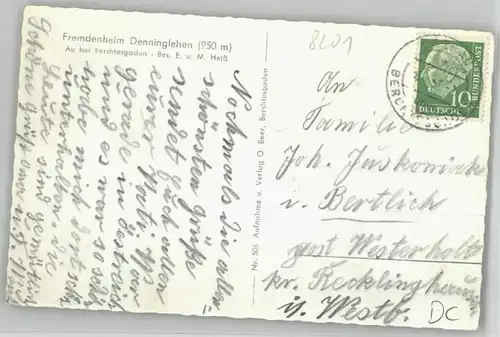 Fremdenheim Denninglehen (950 m)
Au bei Berchtesgaden - Bes. E. u. M. Heiß
Nochmals die aller=
schönsten Grüße
sendet Euch allen
eurer Mati. Ws
gerade in Östreich
und es war so schön
hoch
unterhalten. die
Leute sind gemütlich
Schöne Grüße
Nr. 505 Aufnahme u. Verlag O. Beer, Berchtesgaden
8201
An
Familie
Joh. Juskowiak
i. Bertlich
post Westerholt
kr. Recklinghausen
i/. Westb.
DC
DEUTSCHE
BUNDESPOST
10
BERCHTESGADEN